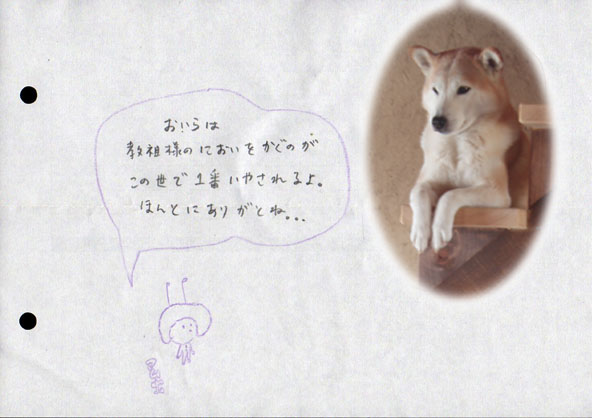 おいらは
教祖様のにおいをかぐのが、
この世で1番いやされるよ。
ほんとにありがとね...